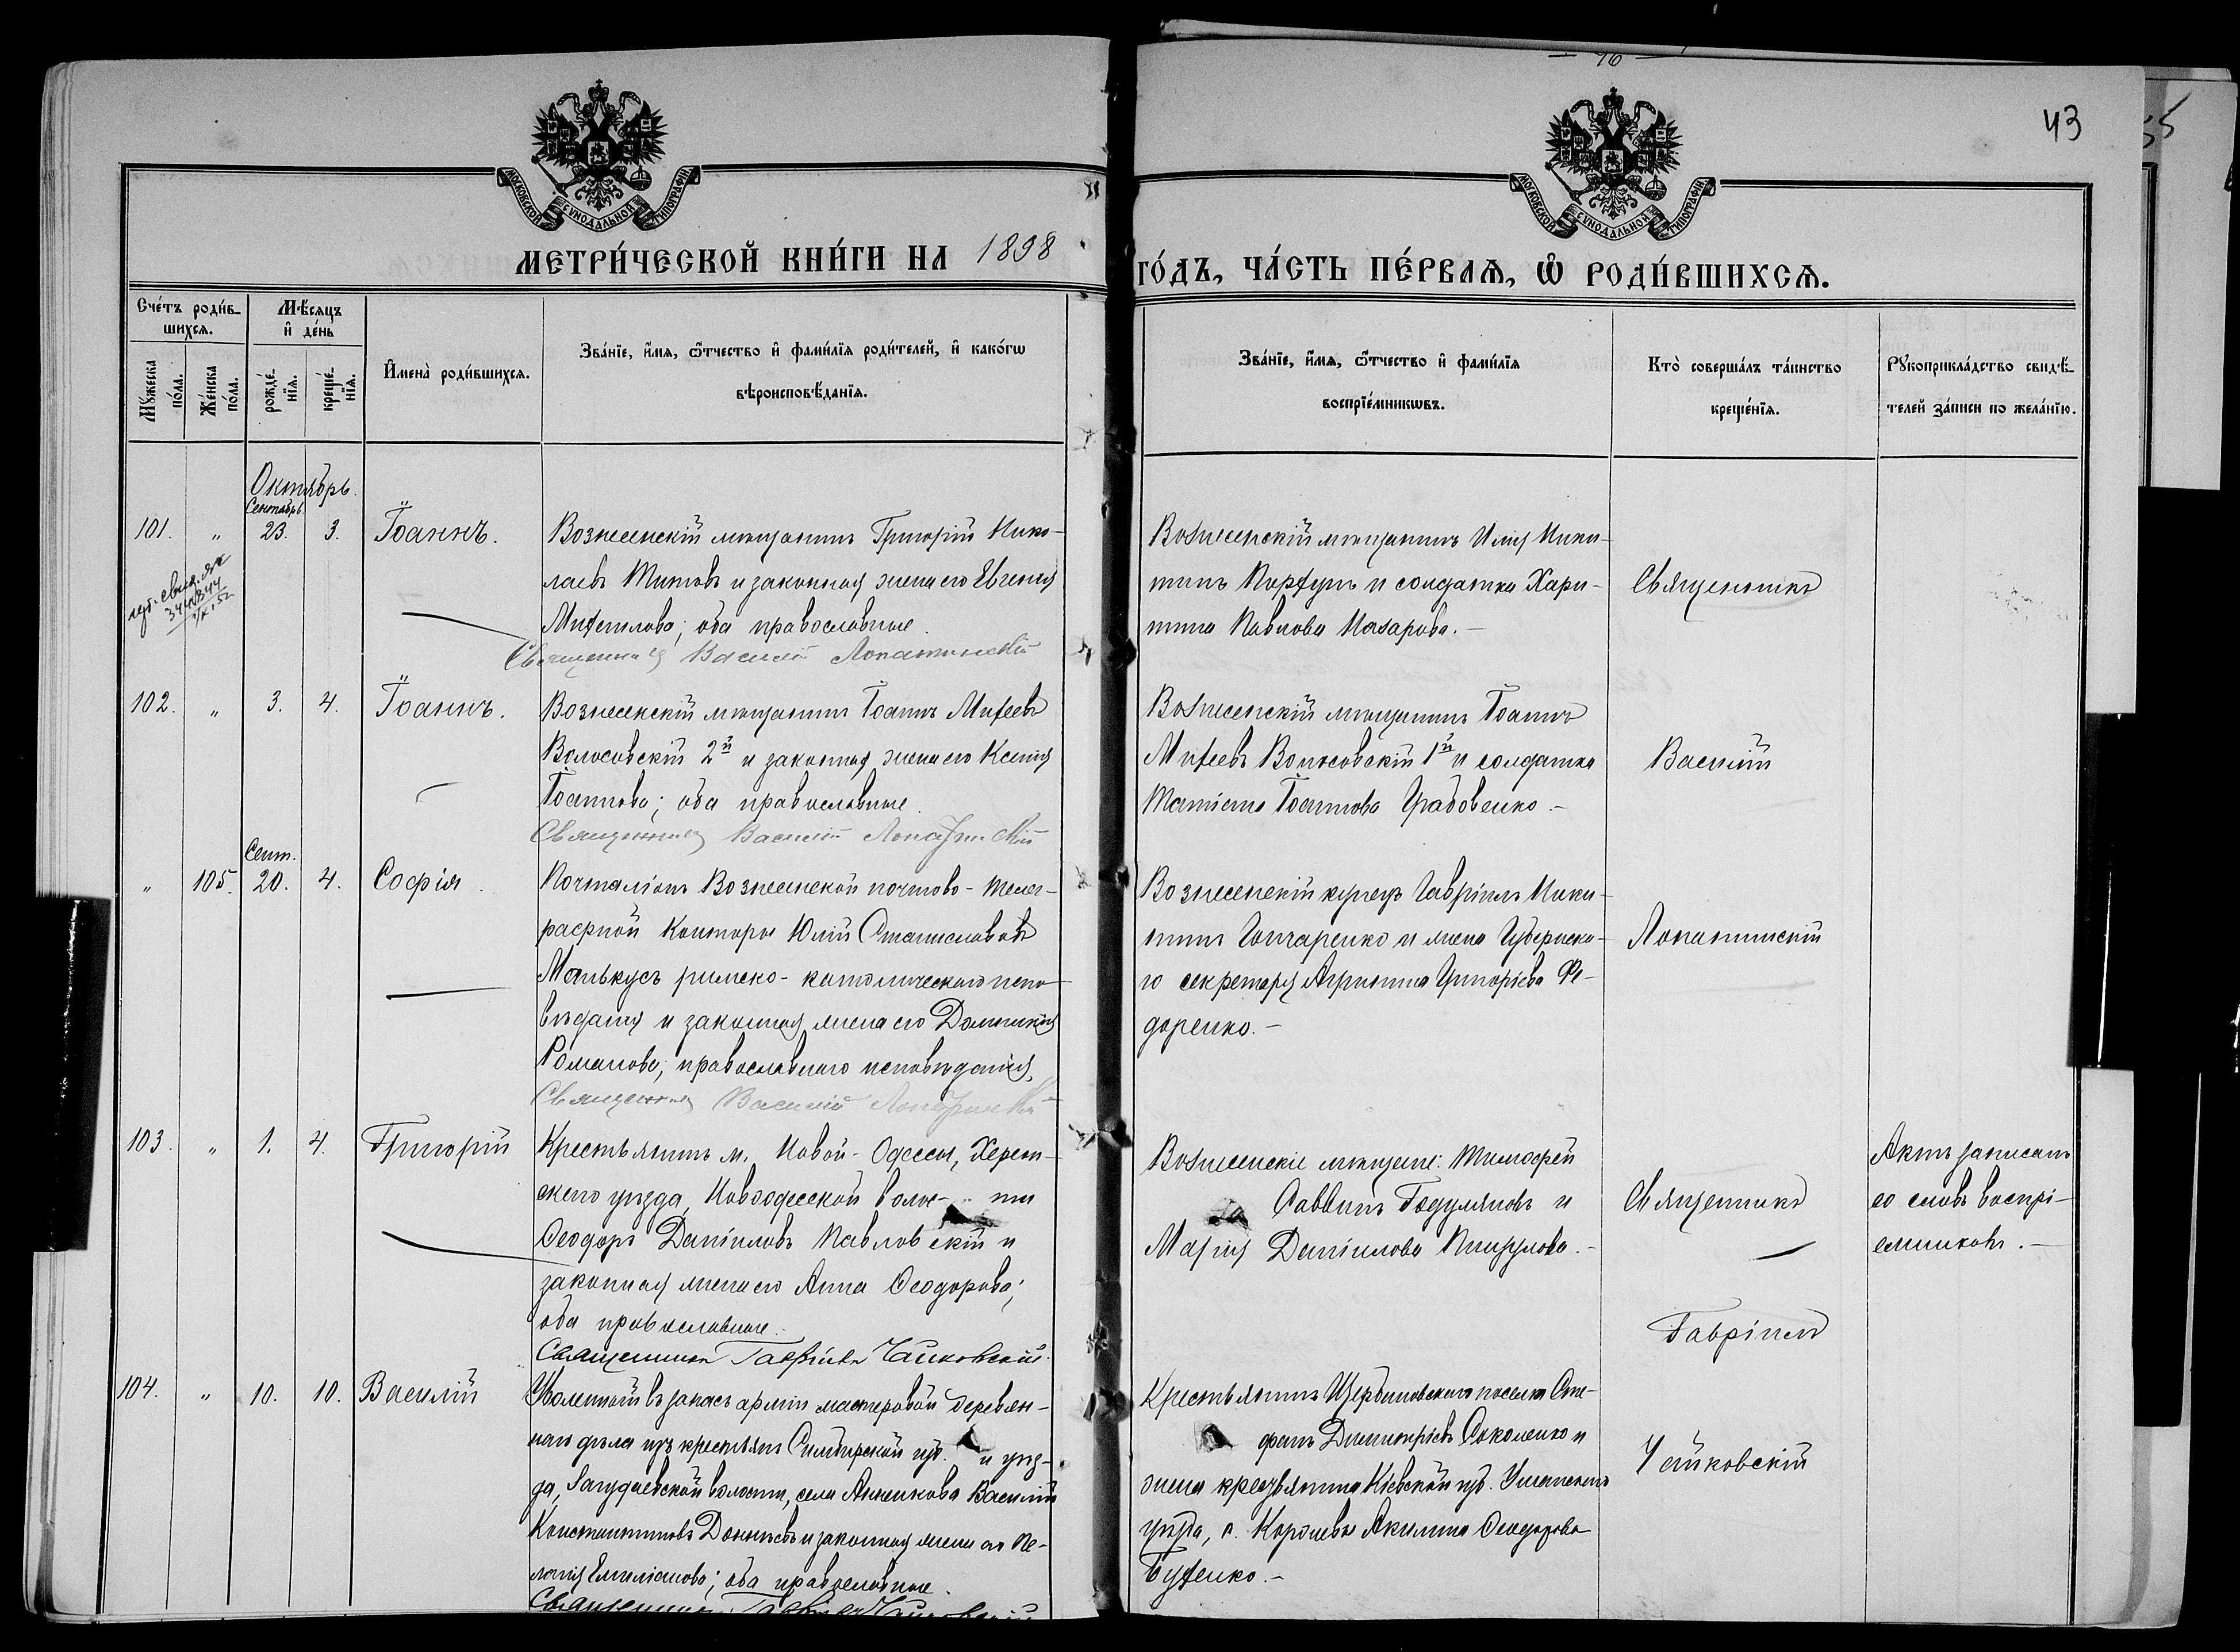 43
МОСКОВСКОЙ СУНОДАЛЬНОЙ ТИПОГРАФІИ
МОСКОВСКОЙ СУНОДАЛЬНОЙ ТИПОГРАФІИ
МЕТРИ́ЧЕСКОЙ КНИ́ГИ НА 1898
ГО́ДЪ, ЧА́СТЬ ПЕ́РВАѦ, Ѡ РОДИ́ВШИХСѦ.
Сче́тъ роди́в-
шихсѧ.
Мѣ́сяцъ
и҆ де́нь
Му́жеска
по́ла.
Же́нска
по́ла.
рожде́-
нїѧ.
креще́-
нїѧ.
И҆мена̀ роди́вшихсѧ.
Зва́нїе, и҆́мѧ, ѻ҆́тчество и҆ фами́лїѧ роди́телей, и҆ како́гѡ
вѣроисповѣ́данїѧ.
Зва́нїе, и҆́мѧ, ѻ҆́тчество и҆ фами́лїѧ
воспрїе́мникѡвъ.
Кто̀ соверша́лъ та́инство
креще́нїѧ.
Рукоприкла́дство свидѣ́-
телей за́писи по жела́нїю.
Октябрь.
Сентябрь.
101. „ 23. 3. Іоаннъ.
Вознесенскій мѣщанинъ Григорій Нико-
лаевъ Титовъ и законная жена его Евгенія
Михаилова; оба православные.
Священникъ Василій Лопатинскій
Вознесенскій мѣщанинъ Илія Ники-
тинъ и солдатка Хари-
тина Павлова Назарова.-
Священникъ
102. „ 3. 4. Іоаннъ.
Вознесенскій мѣщанинъ Іоаннъ Михеевъ
Волосовскій 2й и законная жена его Ксенія
Іоаннова; оба православные.
Священникъ Василій Лопатинскій
Вознесенскій мѣщанинъ Іоаннъ
Михеевъ Волосовскій 1й и солдатка
Татіана Іоаннова Градовенко.-
Василій
Сент.
„ 105. 20. 4. Софія.
Почталіонъ Вознесенской почтово-телег-
рафной конторы Юлій Станиславовъ
Манькусъ римско-католическаго испо-
вѣданія и законная жена его Домникія
Романова, православнаго исповѣданія.
Священникъ Василій Лопатинскій
Вознесенскій купецъ Гавріилъ Ники-
тинъ Гончаренко и жена Губернска-
го секретаря Агрипина Григоріева Фе-
доренко.-
Лопатинскій
103. „ 1. 4. Григорій
Крестьянинъ м. Новой-Одессы, Херсон-
скаго уѣзда, Новоодесской волос-ти
Ѳеодоръ Даніиловъ Павловскій и
законная жена его Анна Ѳеодорова;
оба православные.
Священникъ Гавріилъ Чайковскій.
Вознесенскіе мѣщане: Тимофей
Саввинъ и
Марія Даніилова
Священникъ
Гавріилъ
Актъ записанъ
со словъ воспрі-
емниковъ.-
104. „ 10. 10. Василій
Уволенный въ запасъ арміи мастеровой деревян-
наго дѣла изъ крестьянъ Симбирской губ. и уѣз-
да, волости, села Анненкова Василій
Константиновъ и законная жена его Пе-
лагія Емиліанова; оба православные.
Священникъ Гавріилъ Чайковскій
Крестьянинъ Щербиновскаго поселка Сте-
фанъ Димитріевъ Соколенко и
жена крестьянина Кіевской губ. Уманскаго
уѣзда, с. Акилина Ѳеодорова
Чайковскій